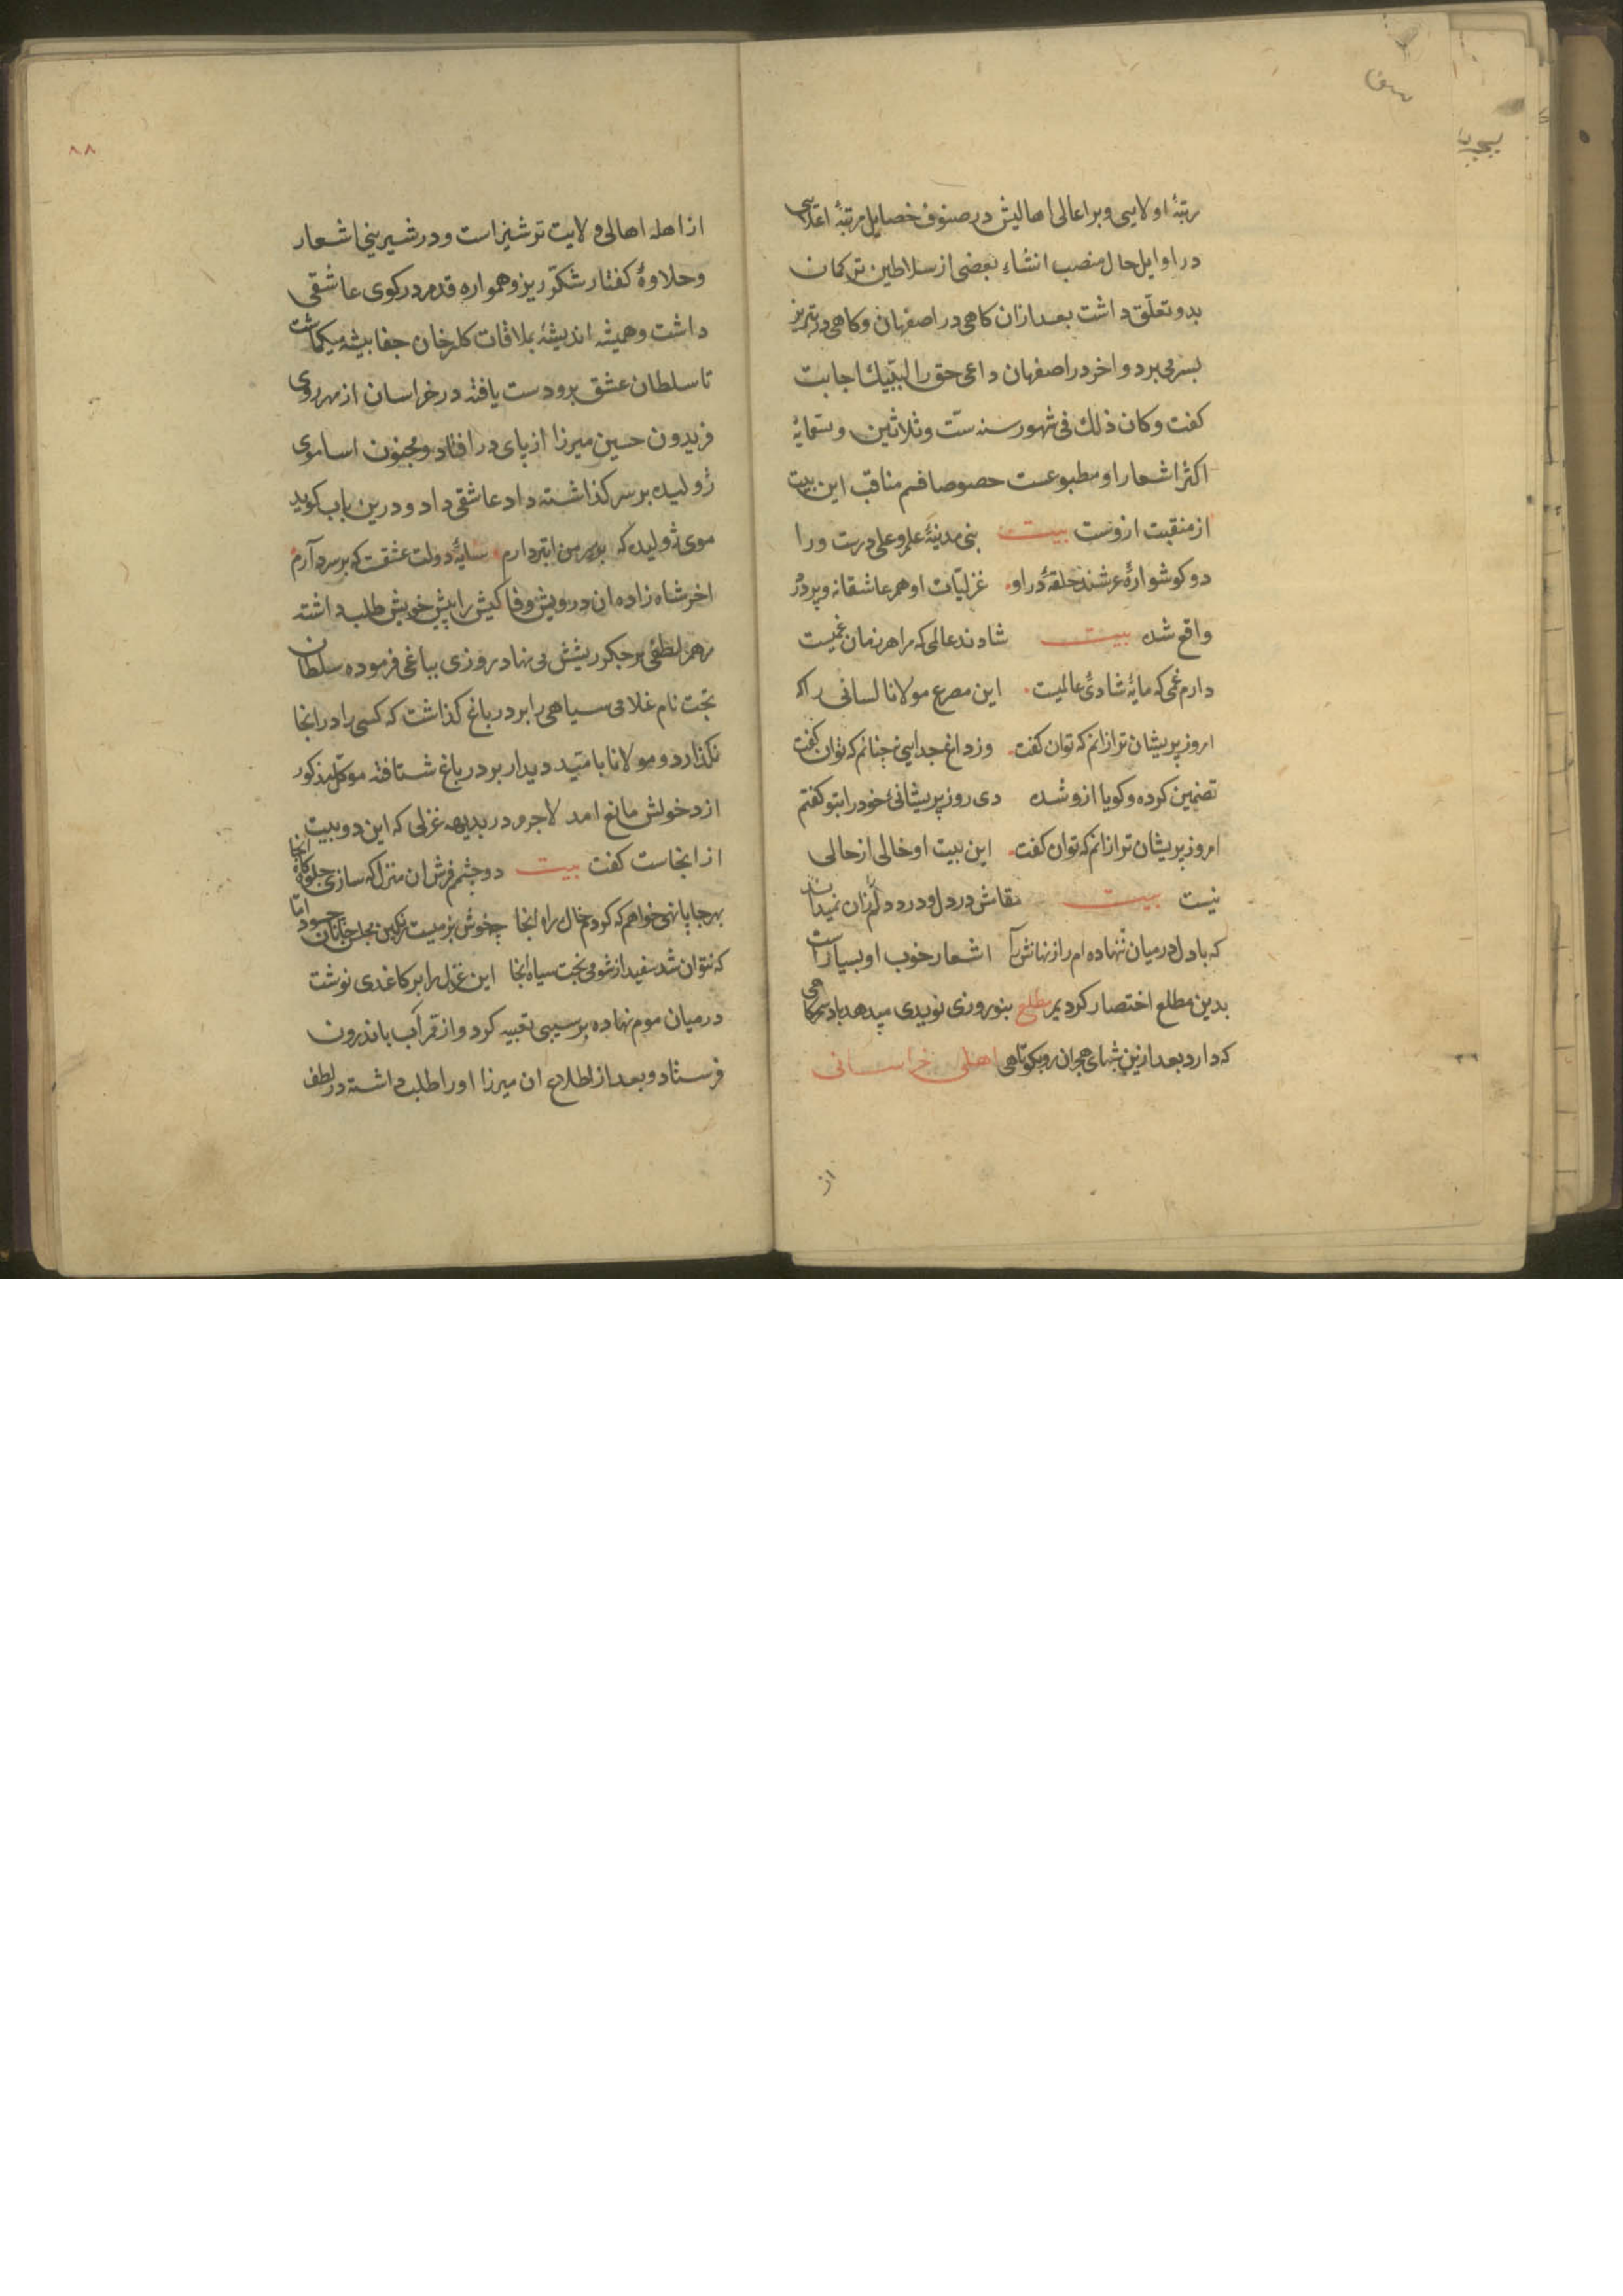 رتبهٔ اولایی و بر اعالی اهالیش در صنوف خصایل مرتبهٔ اعلایی
در اوایل حال منصب انشاء بعضی از سلاطین ترکمان
بدو تعلّق داشت بعد ازان کاهی در اصفهان و کاهی در تبریز
بسر می برد و اخر در اصفهان داعی حق را لبّیك اجابت
کفت و کان ذلك فی شهور سنه ستّ و ثلاثین و تسمایهٔ
اکثر اشعار او مطبوعست خصوصا قسم مناقب این بیت
از منقبت ازوست بیت نبی مدینهٔ علم و علی درست ورا
دو کوشوارهٔ عرشند حلقهٔ در او. غزلیّات او هم عاشقانه و پر درد
واقع شده بیت شادند عالمی که مرا هر زمان غمیست
دارم غمی که مایهٔ شادیٔ عالمیست. این مصرع مولانا لسانی را که
امروز پریشان تر ازانم که توان کفت. وز داغ جدایی نه چنانم که توان کفت
تضمین کرده و کویا ازو شده دی روز پریشانیٔ خود را بتو کفتم
امروز پریشان تر ازانم که توان کفت. این بیت او خالی از حالی
نیست بیت نقاش درد دل و درد دلم زان نمیداند
که با دل در میان ننهاده ام راز نهانش را اشعار خوب او بسیار است
بدین مطلع اختصار کردیم مطلع بنوروزی نویدی میدهد باد سحرکاهی
که دارد بعد ازین شبهای هجران رو بکوتاهی اهلی خراسانی
از
۸۸
از اهله اهالی ولایت ترشیز است و در شیرینی اشعار
و حلاوهٔ کفتار شکّر ریز و همواره قدم در کوی عاشقی
داشت و همیشه اندیشهٔ بملاقات کلرخان جفا پیشه میکماشت
تا سلطان عشق برو دست یافته در خراسان از مهر روی
فریدون حسین میرزا از پای در افتاد و مجنون اسا موی
ژولیده بر سر کذاشته داد عاشقی داد و درین باب کوید
موی ژولیده که بر سر من ابتر دارم. سایهٔ دولت عشقست که بر سر دارم
اخر شاه زاده ان درویش وفا کیش را پیش خویش طلب داشته
مرهم لطفی بر جکر ریشش می نهاد روزی بباغی فرموده سلطان
بخت نام غلامی سیاهی را بر در باغ کذاشت که کسی را در انجا
نکذارد و مولانا بامّید دیدار بر در باغ شتافته موکّل مذکور
از دخولش مانع امد لاجرم در بدیهه غزلی که این دو بیت
از انجاست کفت بیت دو چشم فرش ان منزل که سازی جلوه کاه انجا
بهر جا پا نهی خواهم که کردم خاك راه انجا چه خوش بزمیست رنکین مجلس جانان چه سود امّا
که نتوان شد سفید از شومی بخت سیاه انجا این غزل را بر کاغدی نوشت
در میان موم نهاده بر سیبی تعبیه کرد و از قر آب باندرون
فرستاد و بعد از اطلاع ان میرزا او را طلب داشته در لطف